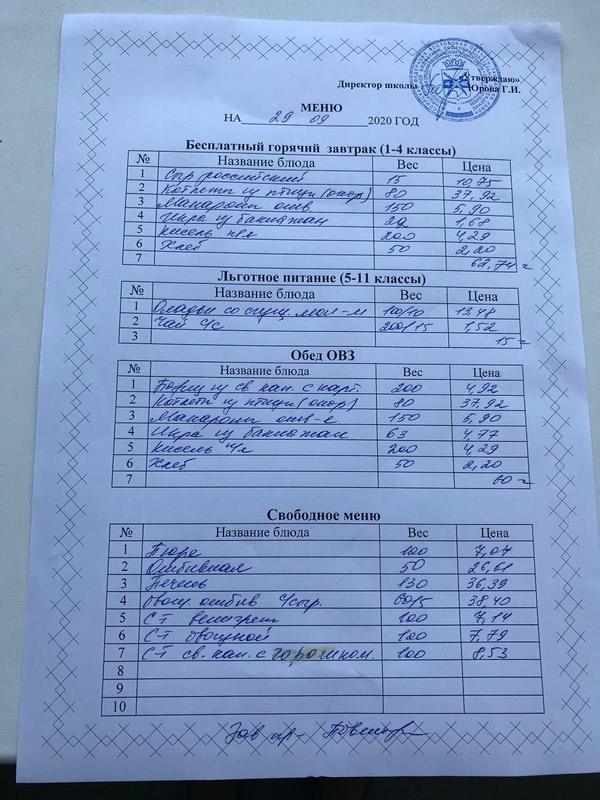 «Утверждаю»
Директор школы Юрова Г.И.
МЕНЮ
НА 29 09 2020 ГОД
Бесплатный горячий завтрак (1-4 классы)
№ Название блюда Вес Цена
1 Сыр российский 15 10,75
2 Котлеты из птицы (окор) 80 37,92
3 Макароны отв. 150 5,90
4 Икра из баклажан 22 1,68
5 кисель 200 4,29
6 Хлеб 50 2,20
7 62,74
Льготное питание (5-11 классы)
№ Название блюда Вес Цена
1 Оладьи со сгущ. мол-м 100/10 13,48
2 Чай с/с 200/15 1,52
3 15
Обед ОВЗ
№ Название блюда Вес Цена
1 Борщ из св. кап. с карт. 200 4,92
2 Котлеты из птицы (окор) 80 37,92
3 Макароны отв-е 150 5,90
4 Икра из баклажан 63 4,77
5 кисель 200 4,29
6 Хлеб 50 2,20
7 60
Свободное меню
№ Название блюда Вес Цена
1 Пюре 100 7,04
2 Отбивная 50 26,61
3 Печень 130 36,39
4 овощ. отбив с/сыр. 60/5 38,40
5 С-т винегрет 100 7,14
6 С-т овощной 100 7,79
7 С-т св. кап. с горошком. 100 8,53
8
9
10
Зав пр-